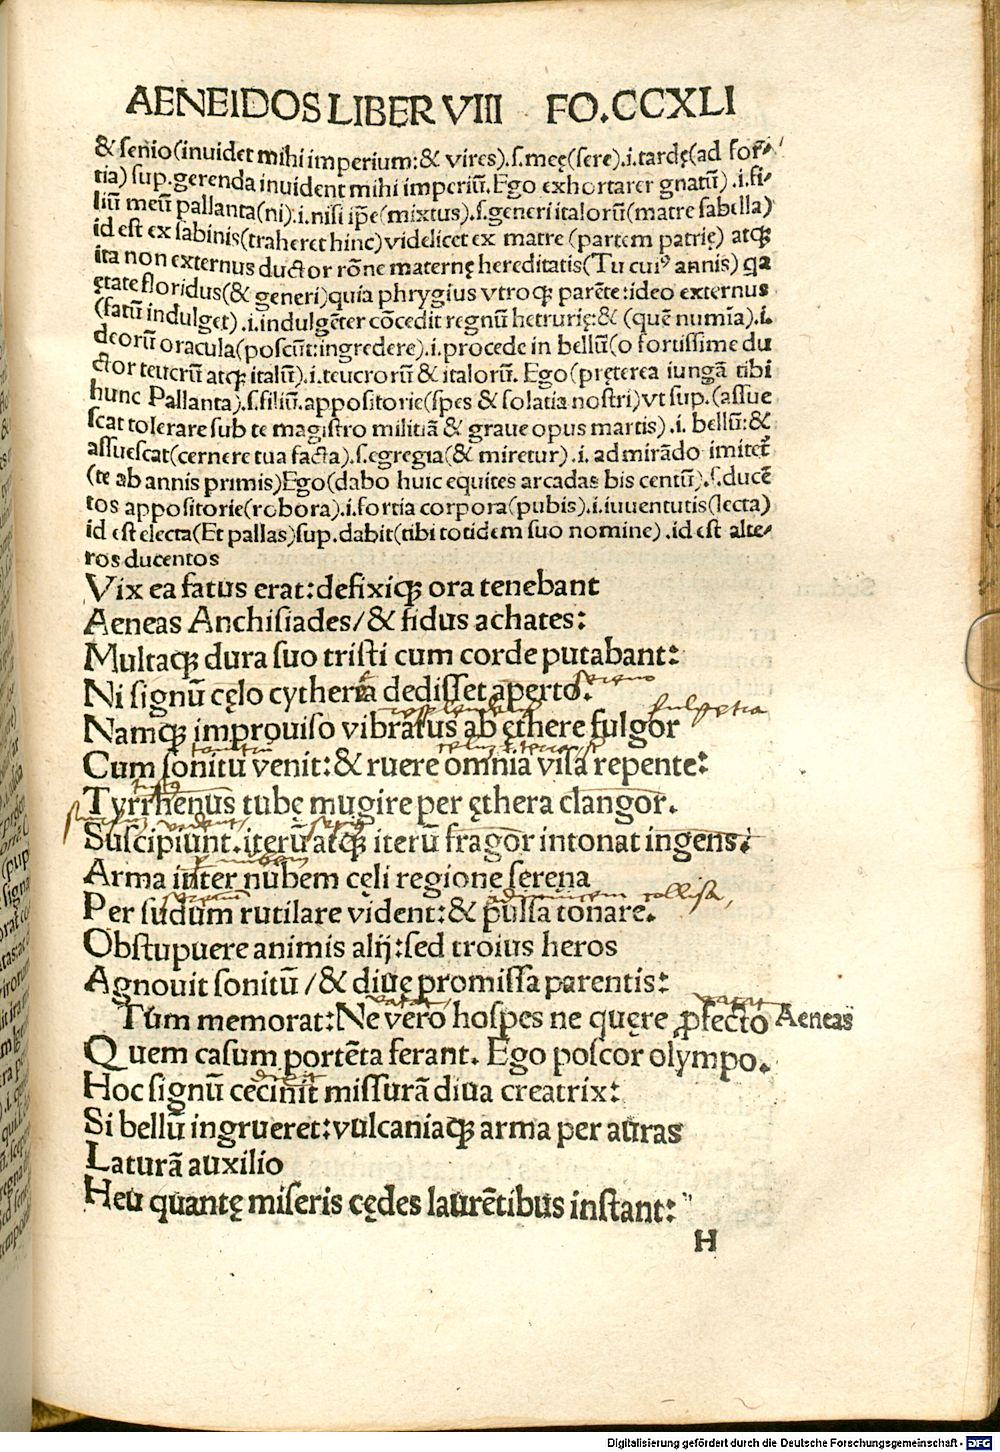 AENEIDOS LIBER VIII FO.CCXLI
& ſenio(inuidet mihi imperium:& vires).ſ.meę(ſere).i.tardę(ad for⸗
tia) sup.gerenda inuident mihi imperiū.Ego exhortarer gnatū) .i.fi⸗
liū meū pallanta(ni).i.niſi ip̄e(mixtus).ſ.generi italorū(matre ſabella)
id est ex ſabinis(traheret hinc)videlicet ex matre (partem patrię) atqꝫ
ita non externus ductor rōne maternę hereditatis(Tu cuiꝰ annis) qa
ętate floridus(& generi)quia phrygius vtroqꝫ parēte:ideo externus
(fatū indulget) .i.indulgēter cōcedit regnū hetrurię:& (quē numīa).i.
deorū oracula(poſcūt:ingredere).i.procede in bellū(o fortiſſime du
ctor teucrū atqꝫ italū).i.teucrorū & italorū. Ego(pręterea iungā tibi
hunc Pallanta).ſ.filiū.appoſitorie(ſpes & ſolatia noſtri)vt ſup.(aſſue
ſcat tolerare ſub te magiſtro militiā & graue opus martis) .i. bellū:&
aſſueſcat(cernere tua facta).ſ.egregia(& miretur) .i. ad mirādo imitet̄
(te ab annis primis)Ego(dabo huic equites arcadas bis centū).ſ.ducē
tos appoſitorie(robora).i.fortia corpora(pubis).i.iuuentutis(lecta)
id eſt electa(Et pallas)sup.dabit(tibi totidem ſuo nomine) .id eſt alte⸗
ros ducentos
Vix ea fatus erat:defixiqꝫ ora tenebant
Aeneas Anchiſiades/& fidus achates:
Multaqꝫ dura ſuo triſti cum corde putabant:
sereno
Ni ſignū cęlo cytheria dediſſet aperto.
resplendens fulgetra
Namqꝫ improuiſo vibratus ab ęthere fulgor
tonitru
Cum ſonitu venit:& ruere omnia viſa repente:
Tyrrhenus tubę mugire per ęthera clangor.
Suſcipiunt.iterū atqꝫ iterū fragor intonat ingens:
nubem
Arma inter nubem cęli regione ſerena
serenum adinuicem collisa
Per ſudum rutilare vident:& pulſa tonare.
Obſtupuere animis alij:ſed troius heros
Agnouit ſonitū /& diuę promiſſa parentis:
vacat vacat
Tum memorat:Ne vero hoſpes ne quęre ꝓfecto Aeneas
Quem caſum portēta ferant. Ego poſcor olympo.
dixit
Hoc ſignū cecinit miſſurā diua creatrix:
Si bellū ingrueret:vulcaniaqꝫ arma per auras
Laturā auxilio
Heu quantę miſeris cędes laurētibus inſtant:
H
Digitalisierung gefördert durch die Deutsche Forschungsgemeinschaft - DFG